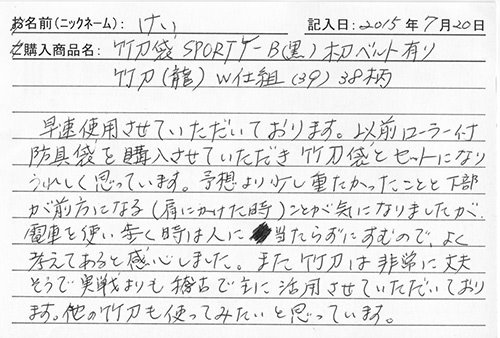 お名前(ニックネーム): けい 記入日: 2015年7月20日
ご購入商品名: 竹刀袋 SPORTケーB(黒) 木刀ベルト有り
竹刀(龍) W仕組(39) 38柄
早速使用させていただいております。以前ローラー付
防具袋を購入させていただき竹刀袋とセットになり
うれしく思っています。予想より少し重たかったことと下部
が前方になる(肩にかけた時)ことが気になりましたが、
電車を使い歩く時は人に当たらずにすむので、よく
考えてあると感心しました。また竹刀は非常に丈夫
そうで実戦よりも稽古で主に活用させていただいており
ます。他の竹刀も使ってみたいと思っています。